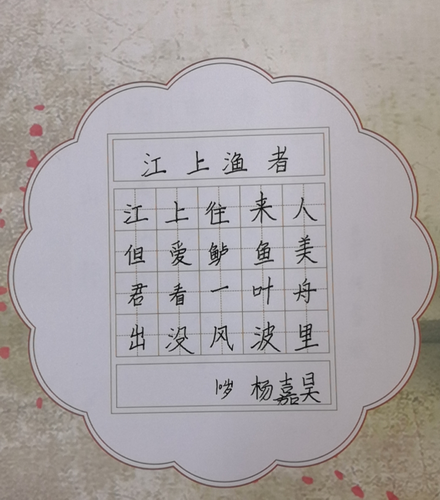 江上渔者
江上往来人
但爱鲈鱼美
君看一叶舟
出没风波里
10岁 杨嘉昊